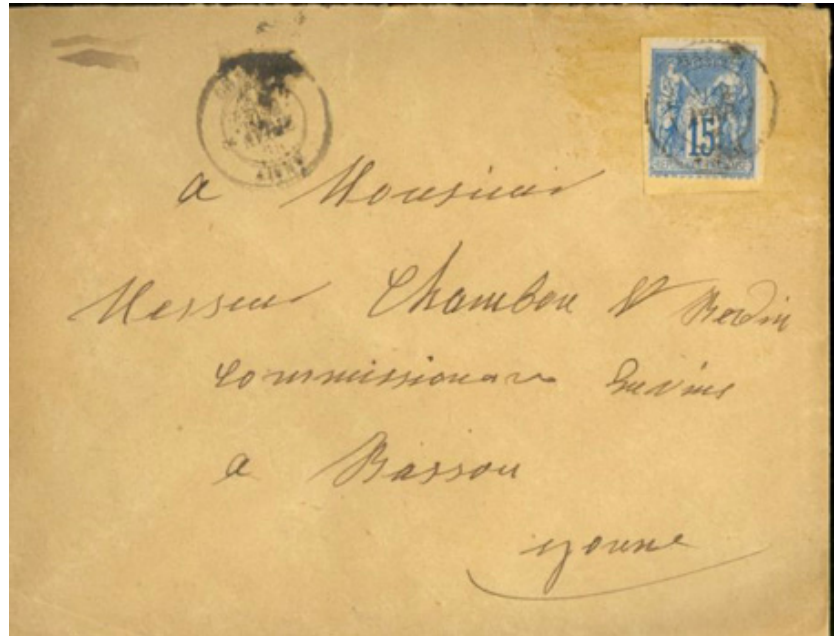 15
a Monsieur
Messieur Chambon & Berdin
Commissionare En vins
a Bassou
yonne